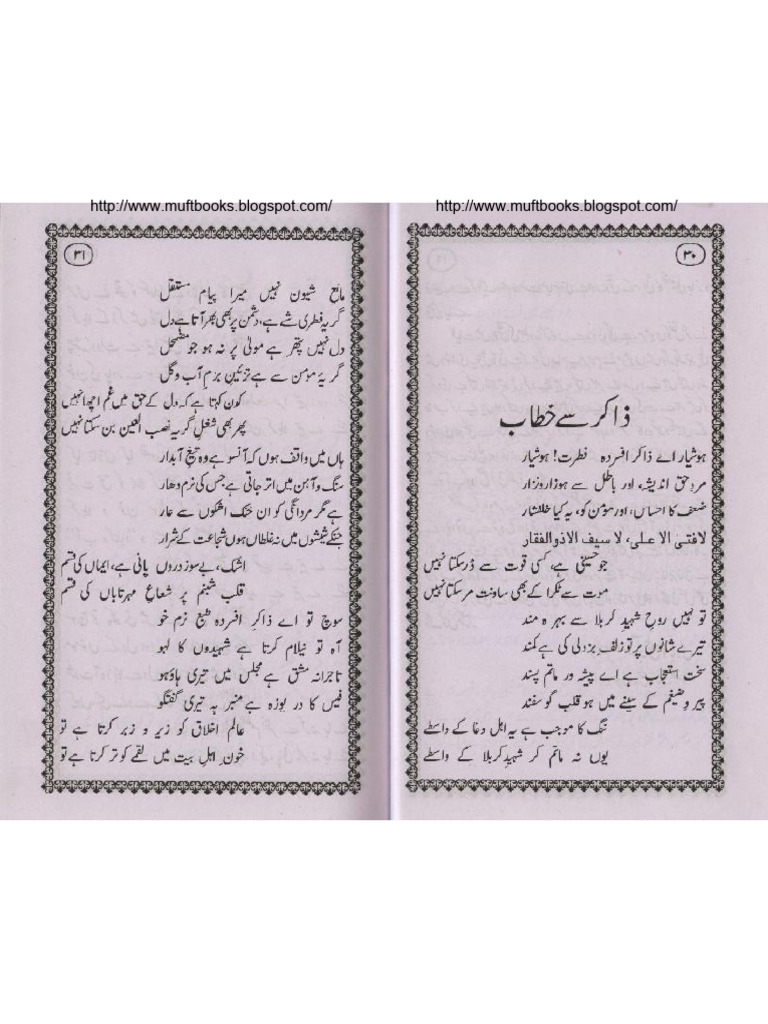 http://www.muftbooks.blogspot.com/
http://www.muftbooks.blogspot.com/
۳۰
ذاکر سے خطاب
ہوشیار اے ذاکر افسردہ فطرت! ہوشیار
مردِ حق اندیشہ، اور باطل سے ہو زار و نزار
ضعف کا احساس، اور مؤمن کو، یہ کیا خلفشار
لا فتیٰ الا علی، لا سیف الا ذوالفقار
جو حسینی ہے، کسی قوت سے ڈر سکتا نہیں
موت سے ٹکرا کے بھی ساونت مر سکتا نہیں
تو نہیں روحِ شہید کربلا سے بہرہ مند
تیرے شانوں پر تو زلفِ بزدلی کی ہے کمند
سخت استعجاب ہے اے پیشہ ور ماتم پسند
پیروِ ضیغم کے سینے میں ہو قلب گوسفند
ننگ کا موجب ہے یہ اہل دغا کے واسطے
یوں نہ ماتم کر شہید کربلا کے واسطے
۳۱
مانع شیون نہیں میرا پیام مستقل
گریہ فطری شے ہے، دشمن پر بھی بھر آتا ہے دل
دل نہیں پتھر ہے مولیٰ پر نہ ہو جو مضمحل
گریۂ مؤمن سے ہے تزئین بزمِ آب و گل
کون کہتا ہے کہ دل کے حق میں غم اچھا نہیں
پھر بھی شغلِ گریہ نصب العین بن سکتا نہیں
ہاں میں واقف ہوں کہ آنسو ہے وہ تیغِ آبدار
سنگ و آہن میں اتر جاتی ہے جس کی نرم دھار
ہے مگر مردانگی کو ان خنک اشکوں سے عار
جنکے شیشوں میں نہ غلطاں ہوں شجاعت کے شرار
اشک، بے سوز دروں پانی ہے، ایماں کی قسم
قلب شبنم پر شعاعِ مہر تاباں کی قسم
سوچ تو اے ذاکرِ افسردہ طبع نرم خو
آہ تو نیلام کرتا ہے شہیدوں کا لہو
تاجرانہ مشق ہے مجلس میں تیری ہاؤ ہو
فیس کا در یوزہ ہے منبر پہ تیری گفتگو
عالم اخلاق کو زیر و زبر کرتا ہے تو
خونِ اہل بیت میں لقمے کو تر کرتا ہے تو